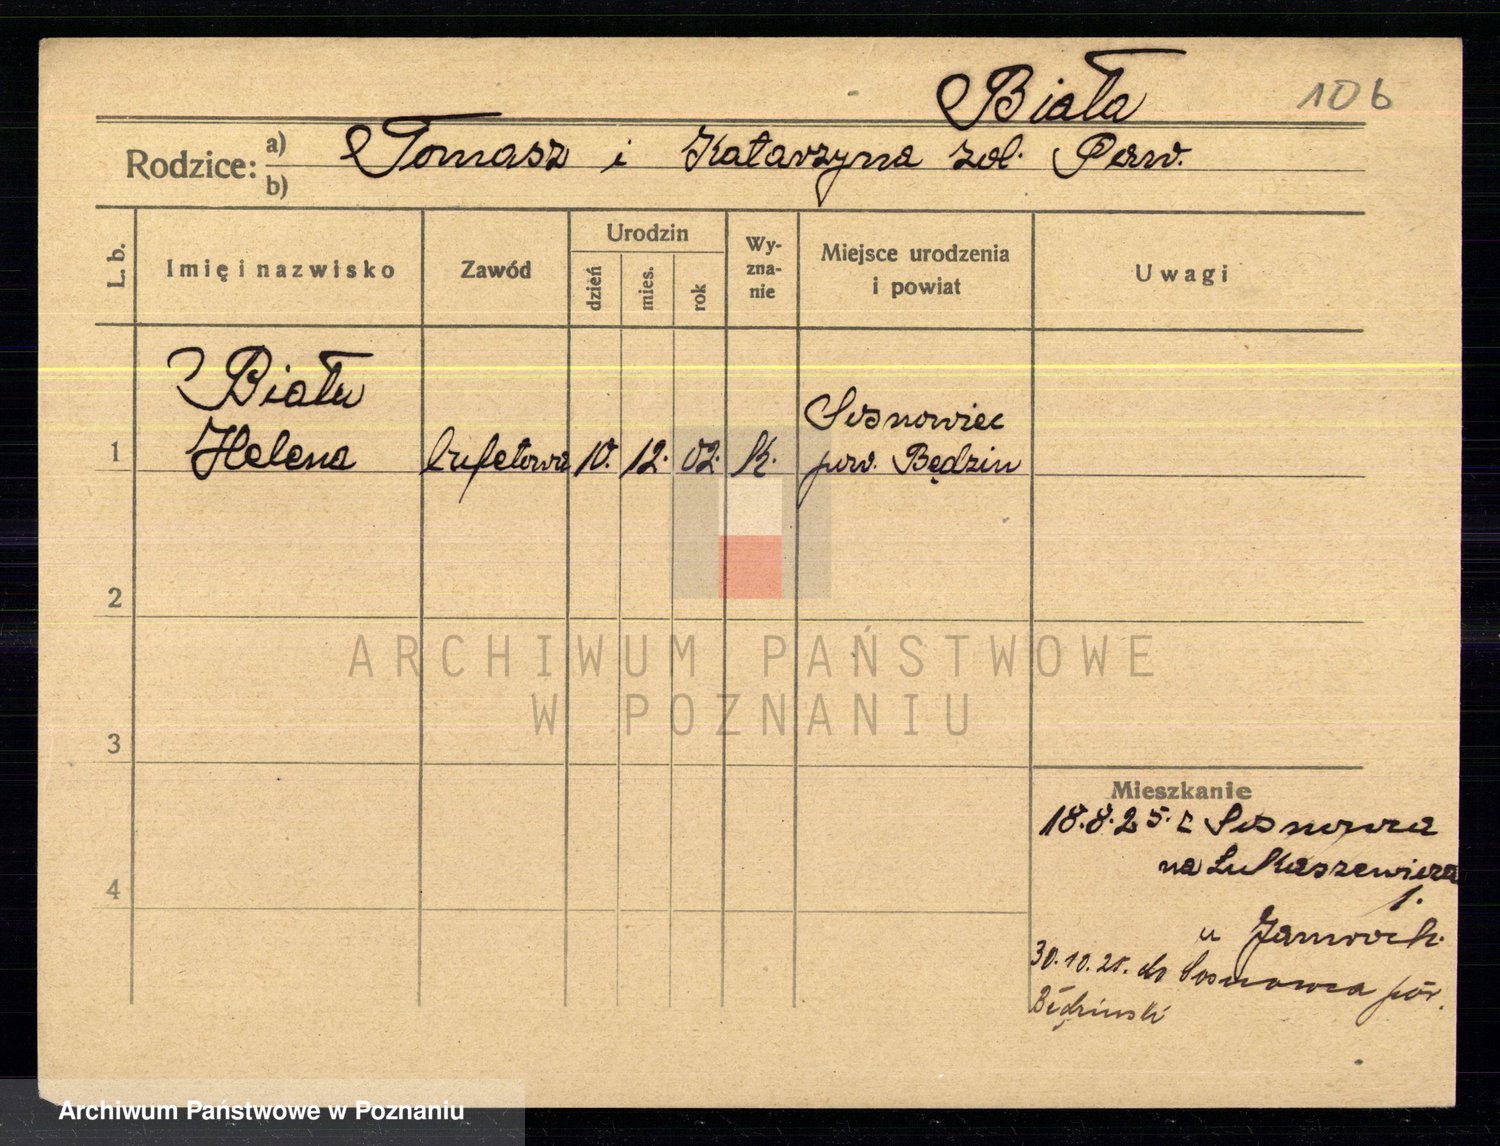 Biała
106
Rodzice: a) Tomasz i Katarzyna
b)
L. b.
Imię i nazwisko
Zawód
Urodzin
dzień
mies.
rok
Wy-
zna-
nie
Miejsce urodzenia
i powiat
Uwagi
Biała
Helena
1
bufetowa
10. 12. 02. K.
Sosnowiec
pow. Będzin
2
3
4
ARCHIWUM PAŃSTWOWE
W POZNANIU
Mieszkanie
18.8.25. z Sosnowca
na Łukaszewicza
1.
u
30.10.25. do Sosnowca pow.
Będziński
Archiwum Państwowe w Poznaniu